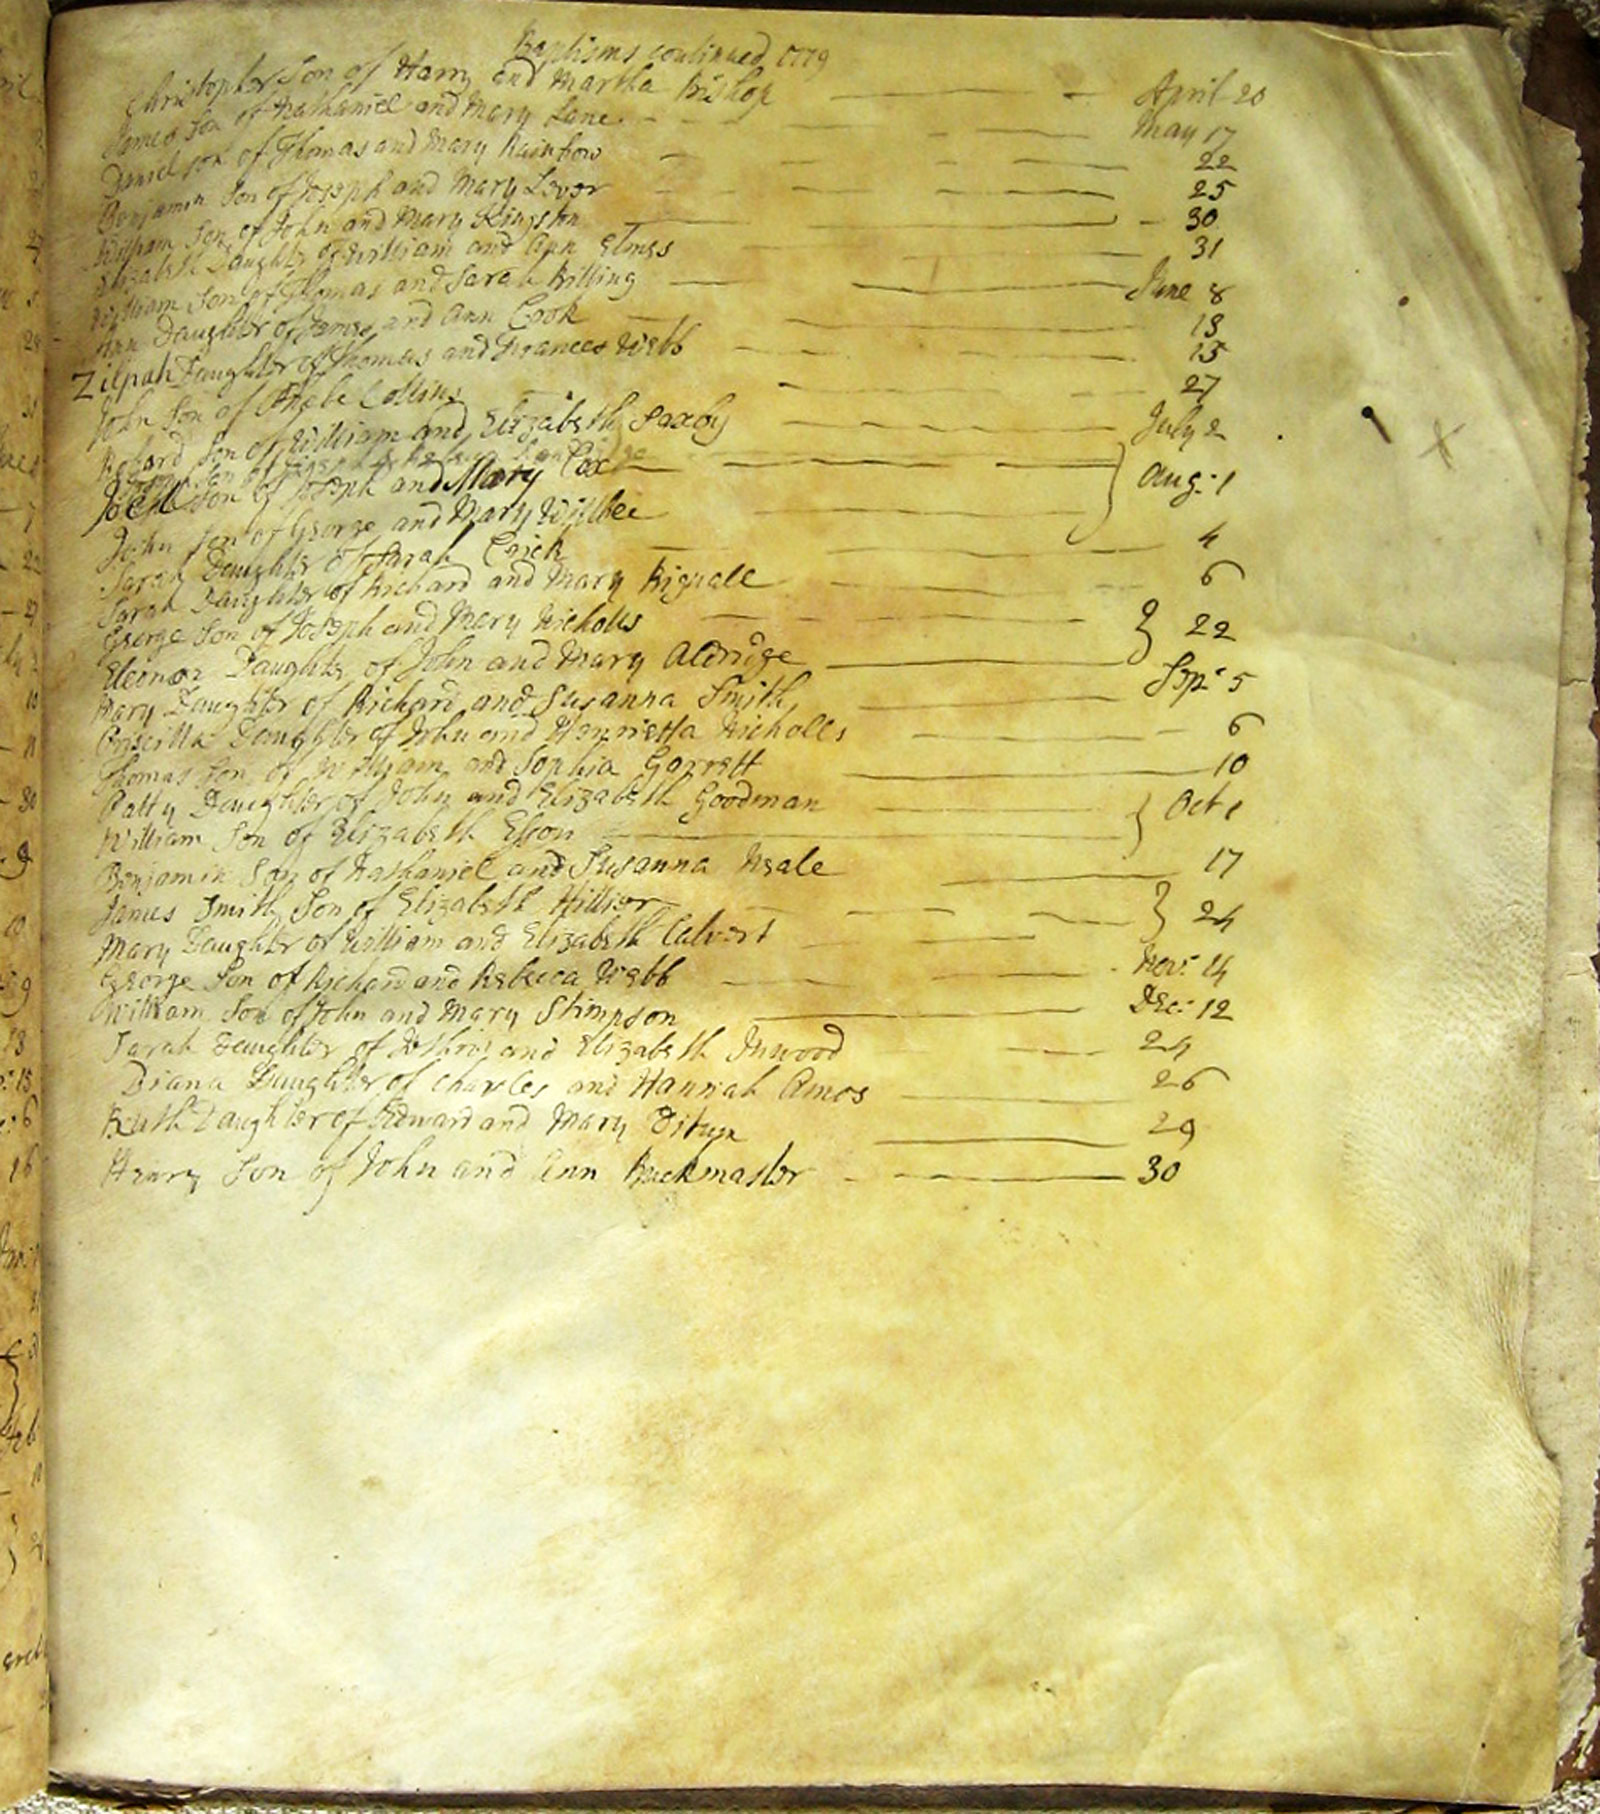 Baptisms continued 1779
Christopher Son of Harry and Martha Bishop April 20
James Son of Nathaniel and Mary Lane May 17
Daniel Son of Thomas and Mary Rainbow 22
Benjamin Son of Joseph and Mary Lever 25
William Son of John and Mary Kingston 30
Elizabeth Daughter of William and Ann Elmes 31
William Son of Thomas and Sarah Billing June 8
Ann Daughter of James and Ann Cook 13
Zilpah Daughter of Thomas and Frances Webb 15
John Son of Collins 27
Richard Son of William and Elizabeth Saxby July 2
Son of Joseph and Mary Cox Aug: 1
John Son of George and Mary
Sarah Daughter of Sarah 4
Sarah Daughter of Richard and Mary 6
George Son of Joseph and Mary Nicholls 22
Eleonor Daughter of John and Mary Aldridge
Mary Daughter of Richard and Susanna Smith Sep: 5
Priscilla Daughter of John and Henrietta Nicholls 6
Thomas Son of William and Sophia Garrett 10
Patty Daughter of John and Elizabeth Goodman Oct 1
William Son of Elizabeth
Benjamin Son of Nathaniel and Susanna Neale 17
James Smith Son of Elizabeth Hillier 24
Mary Daughter of William and Elizabeth Calvert
George Son of Richard and Rebecca Webb Nov: 14
William Son of John and Mary Stimpson Dec: 12
Sarah Daughter of and Elizabeth Inwood 24
Diana Daughter of Charles and Hannah Amos 26
Ruth Daughter of Edward and Mary 29
Henry Son of John and Ann Buckmaster 30